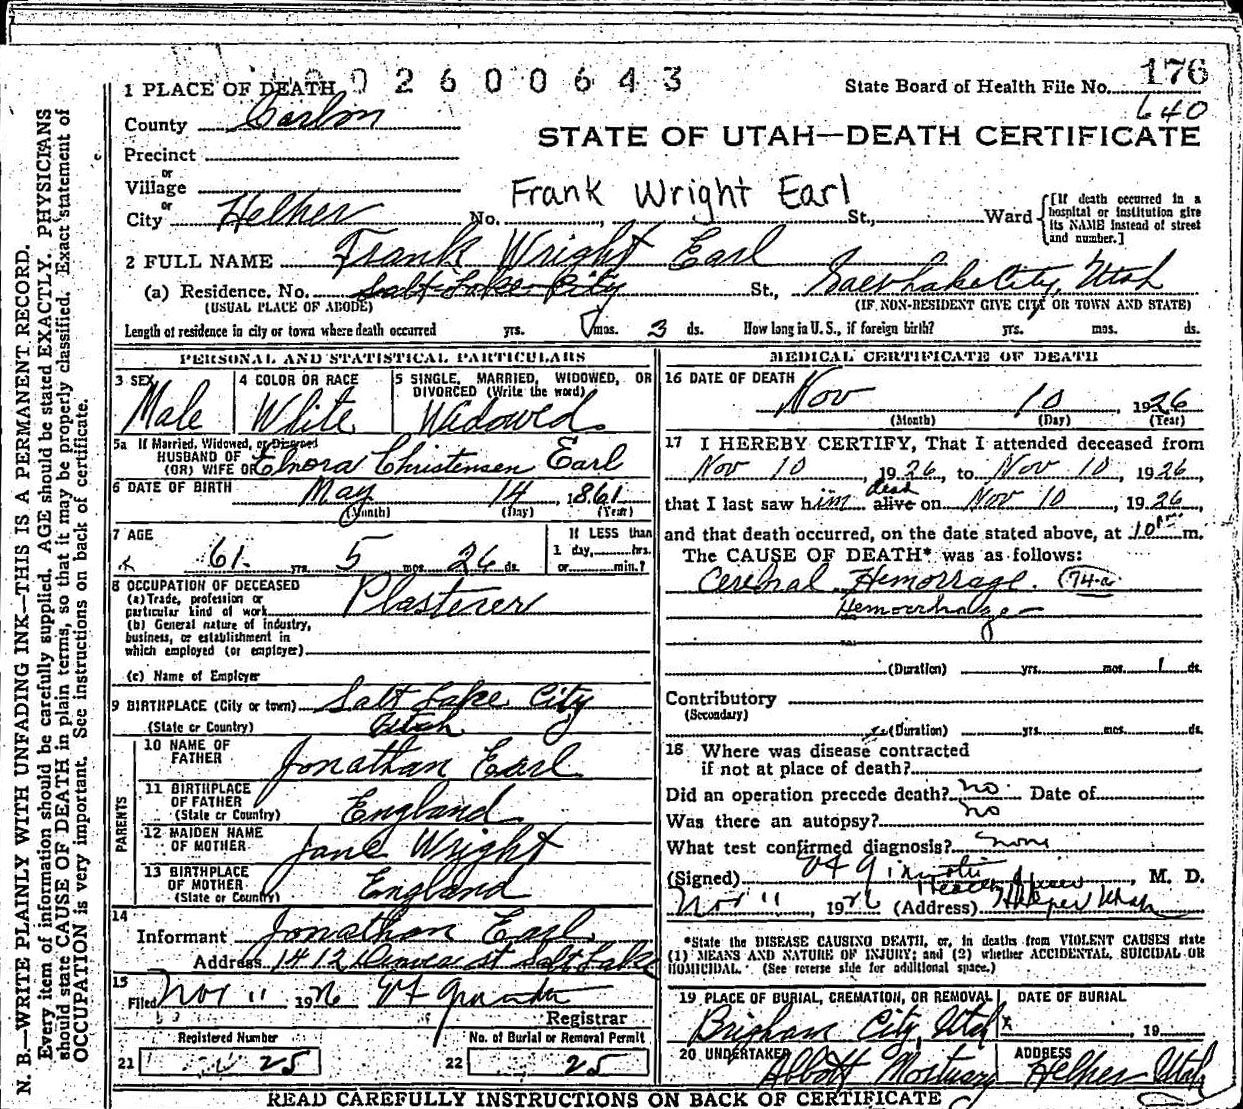 1 PLACE OF DEATH 0 0 2 6 0 0 6 4 3
State Board of Health File No. 176
640
County Carbon
STATE OF UTAH—DEATH CERTIFICATE
Precinct
or
Village
or
Frank Wright Earl
City Helper No. St., Ward
[If death occurred in a hospital or institution give its NAME instead of street and number.]
2 FULL NAME Frank Wright Earl
(a) Residence. No. Salt Lake City St., Salt Lake City, Utah
(USUAL PLACE OF ABODE) (IF NON-RESIDENT GIVE CITY OR TOWN AND STATE)
Length of residence in city or town where death occurred yrs. mos. 3 ds. How long in U. S., if foreign birth? yrs. mos. ds.
PERSONAL AND STATISTICAL PARTICULARS
3 SEX Male
4 COLOR OR RACE White
5 SINGLE, MARRIED, WIDOWED, OR DIVORCED (Write the word) Widowed
5a If Married, Widowed, or Divorced
HUSBAND OF
(OR) WIFE OF Elnora Christensen Earl
6 DATE OF BIRTH May 14, 1861
(Month) (Day) (Year)
7 AGE 61 yrs. 5 mos. 26 ds.
If LESS than 1 day, hrs. or min.?
8 OCCUPATION OF DECEASED
(a) Trade, profession or particular kind of work Plasterer
(b) General nature of industry, business, or establishment in which employed (or employer)
(c) Name of Employer
9 BIRTHPLACE (City or town) Salt Lake City
(State or Country) Utah
PARENTS
10 NAME OF FATHER Jonathan Earl
11 BIRTHPLACE OF FATHER (State or Country) England
12 MAIDEN NAME OF MOTHER Jane Wright
13 BIRTHPLACE OF MOTHER (State or Country) England
14
Informant Jonathan Earl
Address 1412 Denver St Salt Lake
15
Filed Nov 11 1926
Registrar
Registered Number
21 25
No. of Burial or Removal Permit
22 25
MEDICAL CERTIFICATE OF DEATH
16 DATE OF DEATH Nov 10, 1926
(Month) (Day) (Year)
17 I HEREBY CERTIFY, That I attended deceased from
Nov 10, 1926, to Nov 10, 1926,
dead
that I last saw him alive on Nov 10, 1926,
and that death occurred, on the date stated above, at 10 pm m.
The CAUSE OF DEATH* was as follows:
Cerebral Hemorrage. (74-a)
Hemorrhage
(Duration) yrs. mos. 1 ds.
Contributory
(Secondary)
(Duration) yrs. mos. ds.
18 Where was disease contracted
if not at place of death?
Did an operation precede death? no Date of
Was there an autopsy? no
What test confirmed diagnosis? none
(Signed), M. D.
Nov 11, 1926 (Address) Helper Utah
*State the DISEASE CAUSING DEATH, or, in deaths from VIOLENT CAUSES state
(1) MEANS AND NATURE OF INJURY; and (2) whether ACCIDENTAL, SUICIDAL OR
HOMICIDAL. (See reverse side for additional space.)
19 PLACE OF BURIAL, CREMATION, OR REMOVAL Brigham City, Utah
DATE OF BURIAL x, 19
20 UNDERTAKER Abbott Mortuary
ADDRESS Helper Utah
READ CAREFULLY INSTRUCTIONS ON BACK OF CERTIFICATE
N. B.—WRITE PLAINLY WITH UNFADING INK—THIS IS A PERMANENT RECORD.
Every item of information should be carefully supplied. AGE should be stated EXACTLY. PHYSICIANS
should state CAUSE OF DEATH in plain terms, so that it may be properly classified. Exact statement of
OCCUPATION is very important. See instructions on back of certificate.